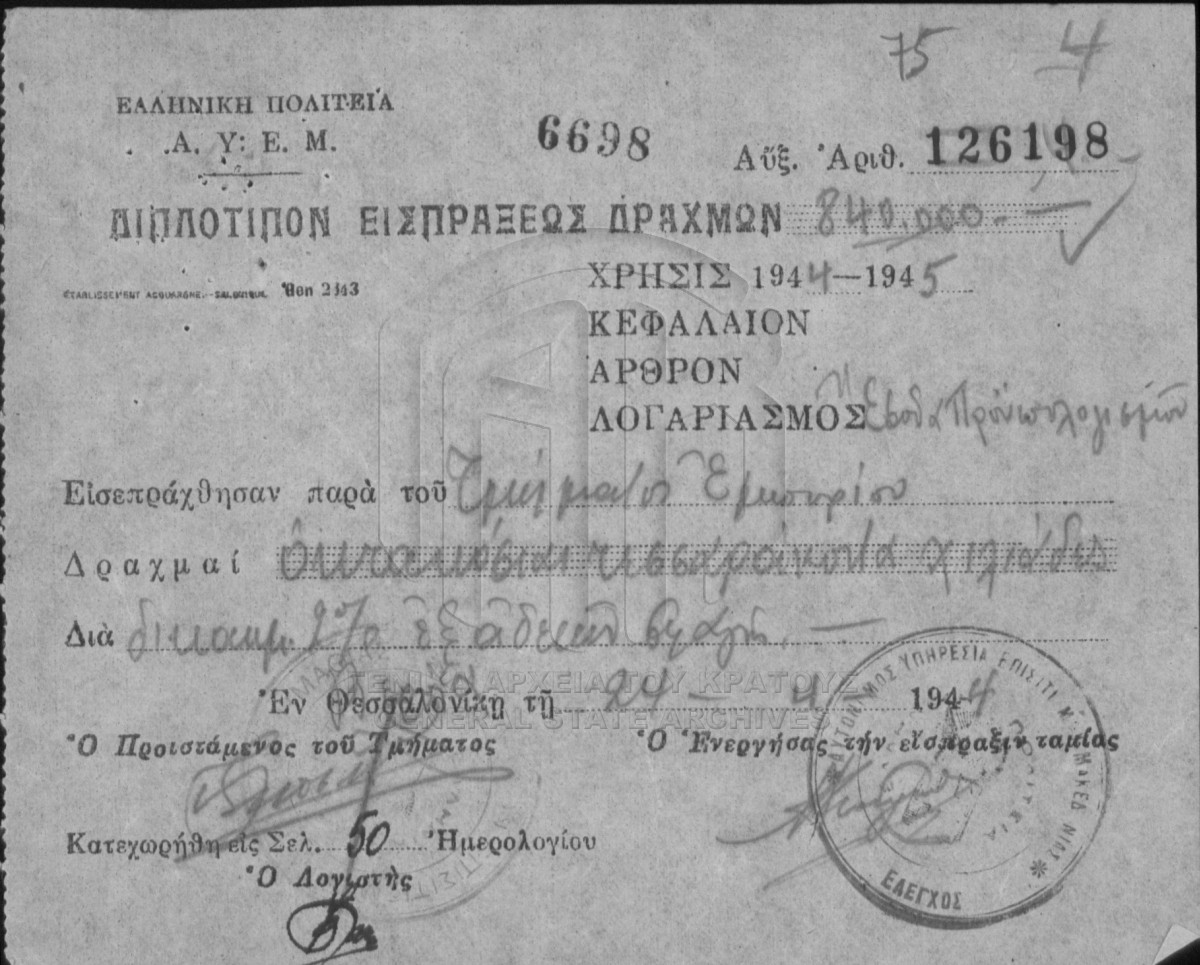 75 4
ΕΛΛΗΝΙΚΗ ΠΟΛΙΤΕΙΑ
Α. Υ. Ε. Μ.
6698
Αὔξ. Ἀριθ. 126198
ΔΙΠΛΟΤΙΠΟΝ ΕΙΣΠΡΑΞΕΩΣ ΔΡΑΧΜΩΝ 840.000.—
ETABLISSEMENT ACQUARONE.—SALONIQUE
ΧΡΗΣΙΣ 1944—1945
ΚΕΦΑΛΑΙΟΝ
ΑΡΘΡΟΝ
ΛΟΓΑΡΙΑΣΜΟΣ Ἔσοδα Προϋπολογισμοῦ
Εἰσεπράχθησαν παρὰ τοῦ Τμήματος Ἐμπορίου
Δραχμαί ὀκτακόσιαι τεσσαράκοντα χιλιάδες
Διὰ δικαιωμ. 2% ἐξ ἀδειῶν
ΓΕΝΙΚΑ ΑΡΧΕΙΑ ΤΟΥ ΚΡΑΤΟΥΣ
GENERAL STATE ARCHIVES
Ἐν Θεσσαλονίκῃ τῇ 24-4- 1944
Ὁ Προιστάμενος τοῦ Τμήματος
Ὁ Ἐνεργήσας τὴν εἴσπραξιν ταμίας
ΑΥΤΟΝΟΜΟΣ ΥΠΗΡΕΣΙΑ ΕΠΙΣΙΤΙ
ΕΛΕΓΧΟΣ
Κατεχωρήθη εἰς Σελ. 50 Ἡμερολογίου
Ὁ Λογιστὴς